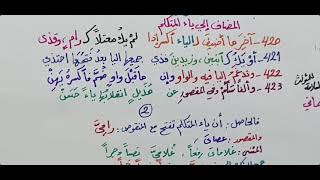 المضاف إلى ياء المتكلم
٤٢٠- آخر ما أضيف لليا اكسر إذا لم يك معتلا كـ رام، وقذى
٤٢١- أو يك كابنين وزيدين فذي جميعها اليا بعد فتحها احتذي
٤٢٢- وتدغم اليا فيه والواو وإن ما قبل واو ضم فاكسره يهن
٤٢٣- وألفا سلم وفي المقصور عن هذيل انقلابها ياء حسن
2
فالحاصل: أن ياء المتكلم تفتح مع المنقوص: راميَّ
والمقصور: عصايَ
المثنى: غلاماي رفعاً، غلاميَّ نصباً وجراً